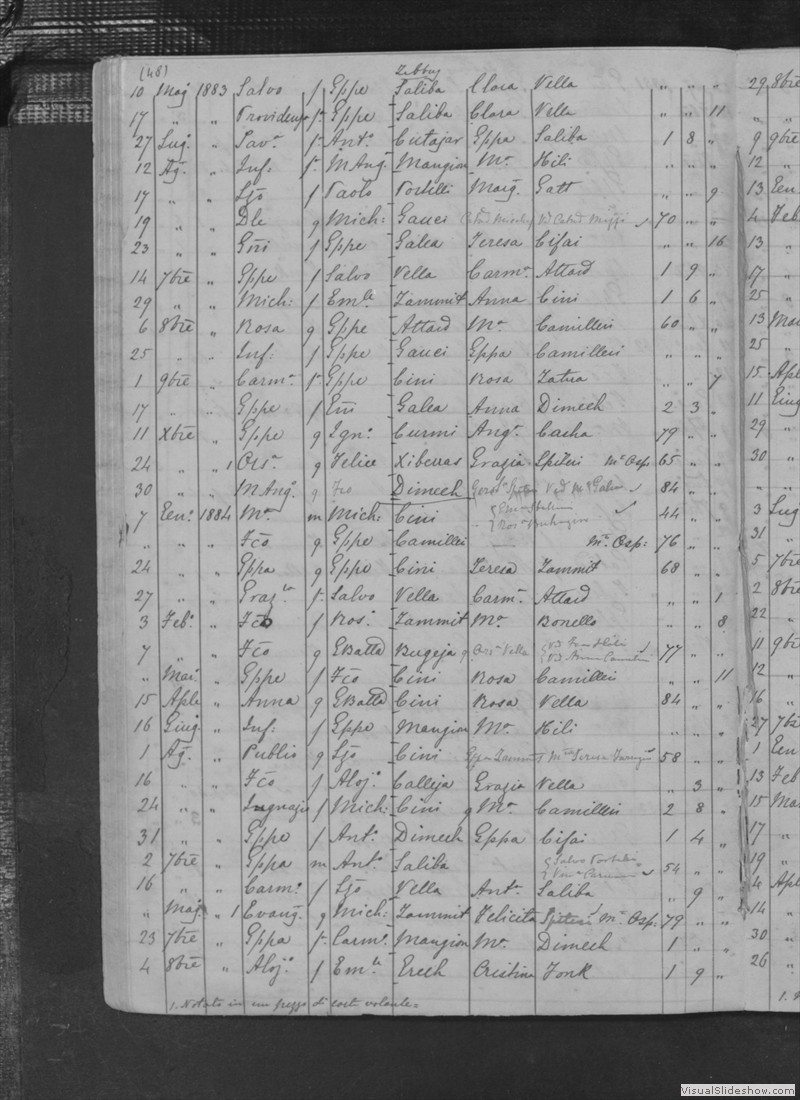 (48) Zebbug
10 Maj 1883 Salvo f Gppe Saliba Clora Vella „ „ „
17 „ „ f Gppe Saliba Clara Vella „ „ 11
27 Lug. „ Sav.a f Ant.o Cutajar Gppa Saliba 1 8 „
12 Ag. „ Inf: f M Ang. Mangion M.a Hili
17 „ „ f Paolo Portelli Marg. Gatt „ „ 9
19 „ „ g Mich: Gauci 70 „ „
23 „ „ f Gppe Galea Teresa Cifai „ „ 16
14 7bre „ Gppe f Salvo Vella Carm.a Attard 1 9 „
29 „ „ Mich: f Em.le Zammit Anna Cini 1 6 „
6 8bre „ Rosa g Gppe Attard M.a Camilleri 60 „ „
25 „ „ Inf: f Gppe Gauci Gppa Camilleri „ „ „
1 9bre „ Carm.a f Gppe Cini Rosa „ „ 7
17 „ „ Gppe f Galea Anna Dimech 2 3 „
11 Xbre „ Gppe g Ign.o Curmi Ang.a 79 „ „
24 „ „ 1 Ors.a g Felice Xiberras Grazia Spiteri M.e Osp. 65 „ „
30 „ „ M Ang.a g Dimech 84 „ „
7 Een.o 1884 M.a m Mich: Cini 44 „ „
„ „ „ Fco g Gppe Camilleri M.e Osp: 76 „ „
24 „ „ Gppa g Gppe Cini Teresa Zammit 68 „ „
27 „ „ Graz.la f Salvo Vella Carm.a Attard „ „ 1
3 Feb.o „ Fco f Ros.o Zammit M.a Bonello „ „ 8
7 „ „ Fco g GBatta Bugeja g Ors.a Vella 77 „ „
„ Mar. „ Gppe f Fco Cini Rosa Camilleri „ „ 11
15 Aple „ Anna g GBatta Cini Rosa Vella 84 „ „
16 Giug. „ Inf: f Gppe Mangion M.a Hili „ „ „
1 Ag. „ Publio g Cini 58 „ „
16 „ „ Fco f Aloj.o Calleja Grazia Vella „ 3 „
24 „ „ f Mich: Cini g M.a Camilleri 2 8 „
31 „ „ Gppe f Ant.o Dimech Gppa Cifai 1 4 „
2 7bre „ Gppa m Ant.o Saliba 54 „ „
16 „ „ Carm.a f Vella Ant.a Saliba „ 9 „
„ Maj „ 1 Evang. g Mich: Zammit Felicita Spiteri M.e Osp. 79 „ „
23 7bre „ Gppa f Carm.o Mangion M.a Dimech 1 „ „
4 8bre „ Aloj.o f Em.le Erech Cristina Fonk 1 9 „
1. Notato in un pezzo di carta volante=
29 8bre
„ „
9 9bre
12 „
13 Een
4 Feb
13 „
17 „
25 „
13 Mar
25 „
15 Aple
11 Giug
29 „
30 „
„ „
3 Lug
31 „
5 7bre
2 8bre
22 „
11 9bre
12 „
16 „
27 7bre
1 Een
13 Feb
15 Mar
17 „
19 „
4 Aple
14 „
30 „
26 „
VisualSlideshow.com